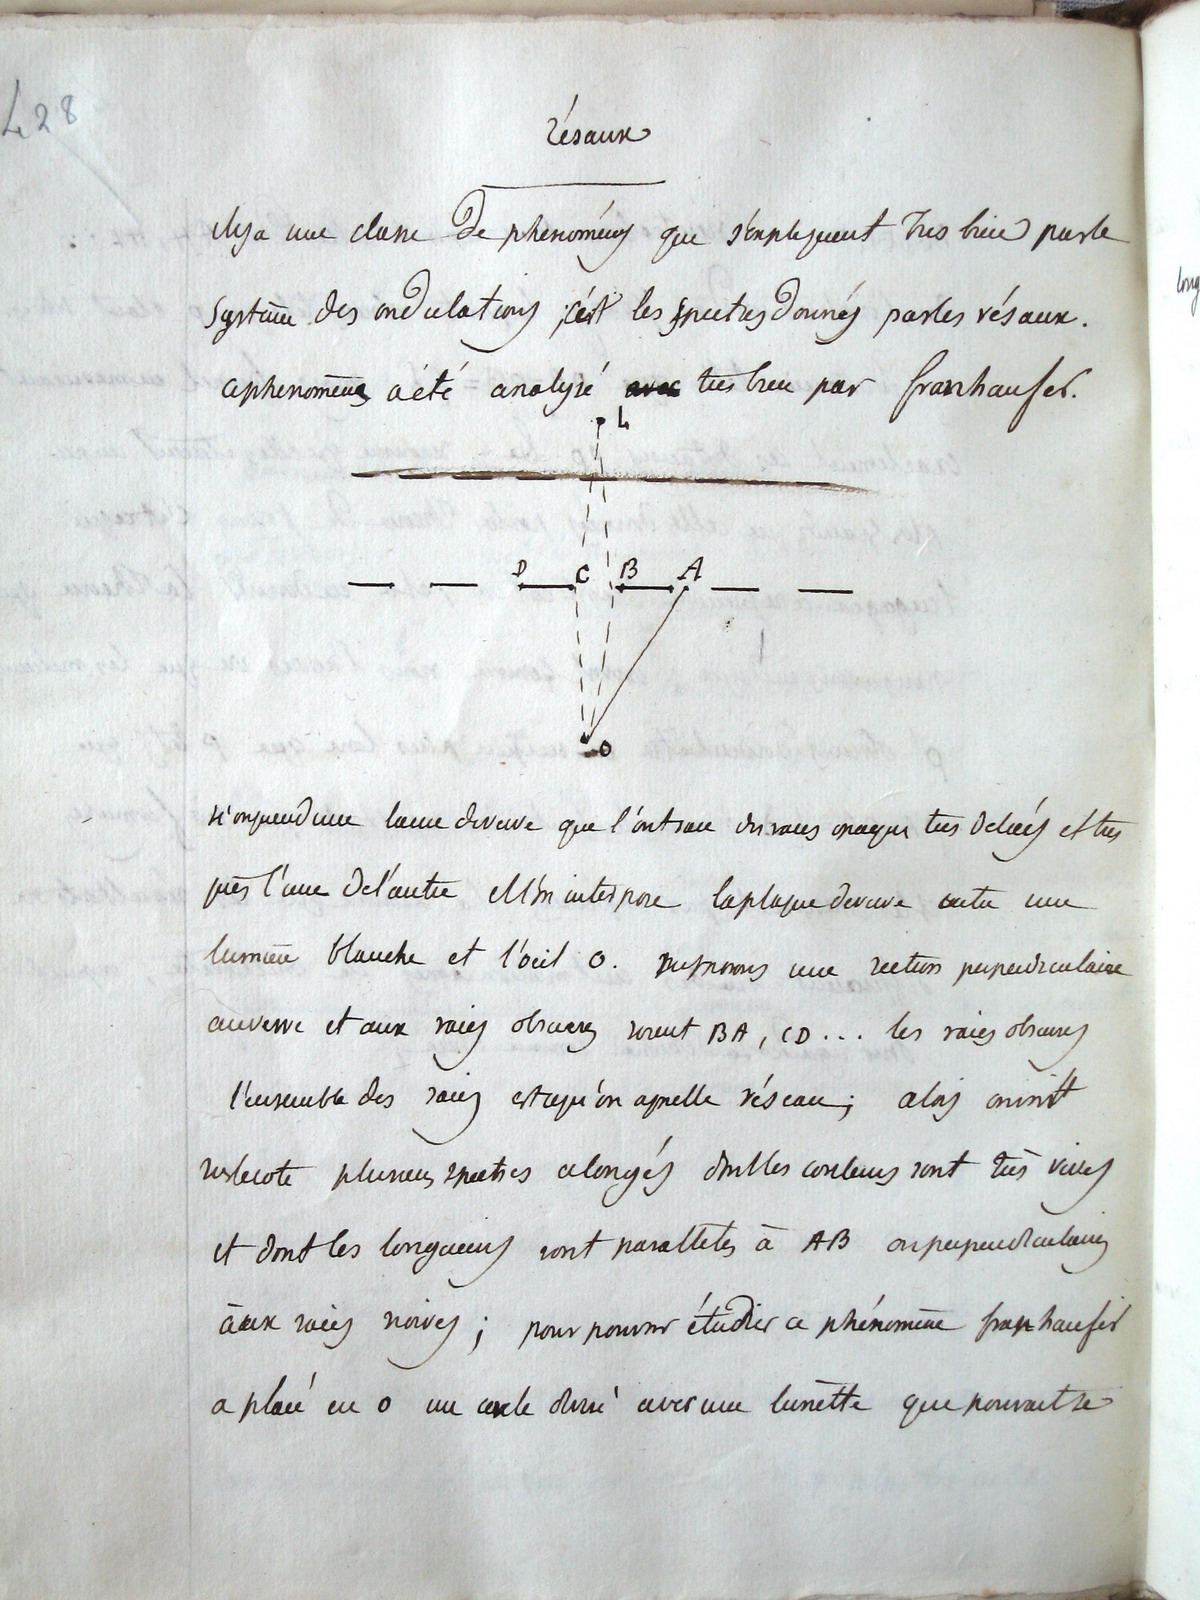 428
résaux
il y a une classe de phenoménes que s'expliquent très bien par le
système des ondulations, c'est les spectres donnés par les résaux.
ce phenomène a été analysé très bien par franhaufer.
L
D C B A
O
si on prend une lame de verre que l'on trace des raies opaques très deliées et très
près l'une de l'autre et l'on interpose la plaque de verre entre une
lumière blanche et l'œil O. supposons une section perpendiculaire
au verre et aux raies obscures soient BA, CD... les raies obscures
l'ensemble des raies est ce qu'on apelle réseau; alors on voit
de coté plusieurs spectres alongés dont les couleurs sont très vives
et dont les longueurs sont paralleles à AB ou perpendiculaires
àaux raies noires; pour pouvoir étudier ce phénomène franhaufer
a placé en O un cercle divisé avec une lunette que pouvait se
long